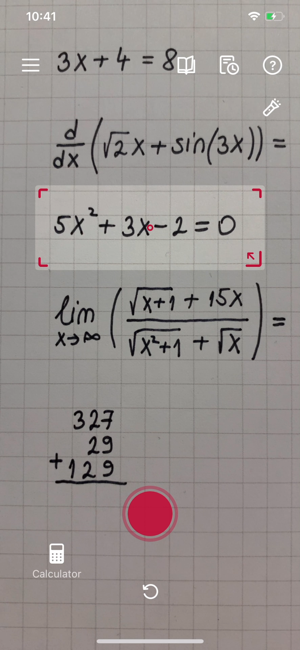 10:41
3x+4=8
d/dx (√2x+sin(3x))=
5x²+3x-2=0
lim x→∞ ((√(x+1)+15x)/(√(x²+1)+√x))=
327
29
+129
Calculator